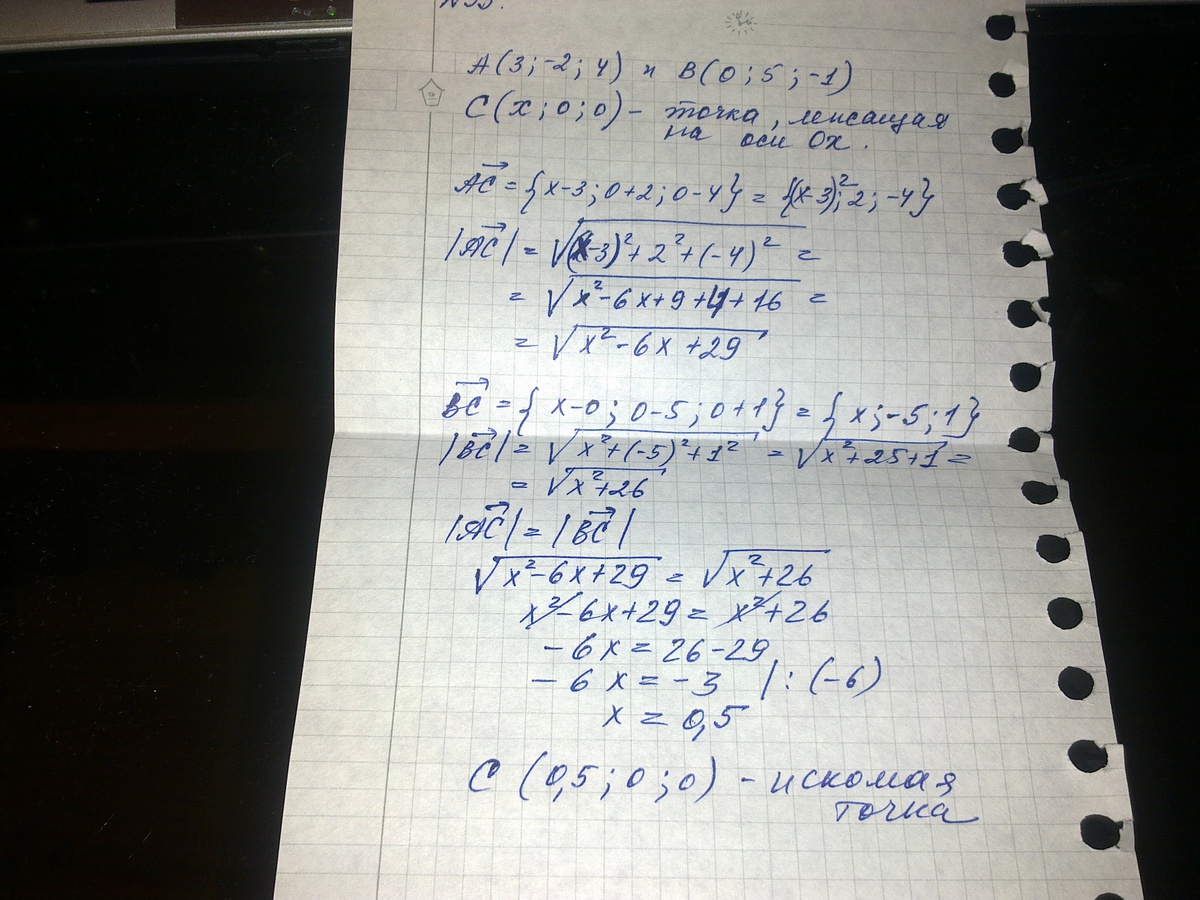 A(3;-2;4) и B(0;5;-1)
C(x;0;0) - точка, лежащая
на оси Ox.
AC = {x-3; 0+2; 0-4} = {(x-3)²; 2; -4}
|AC| = √((x-3)²+2²+(-4)²) =
= √(x²-6x+9+4+16) =
= √(x²-6x+29)
BC = { x-0; 0-5; 0+1} = { x; -5; 1}
|BC| = √(x²+(-5)²+1²) = √(x²+25+1) =
= √(x²+26)
|AC| = |BC|
√(x²-6x+29) = √(x²+26)
x²-6x+29 = x²+26
-6x = 26-29
-6x = -3 | : (-6)
x = 0,5
C (0,5; 0; 0) - искомая
точка